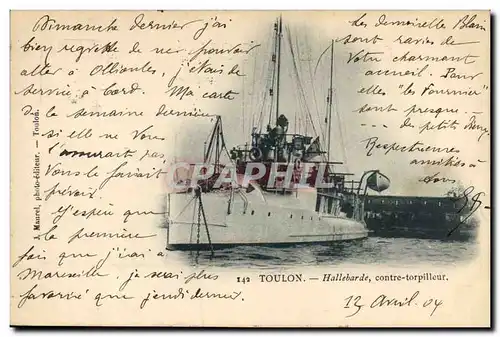 Dimanche dernier j'ai
bien regretté de ne pouvoir
aller à Ollioules, j'étais de
service à bord. Ma carte
de la semaine dernière
si elle ne vous
l'aurait pas
vous le faisait
prévoir
J'espère que
la première
fois que j'irai à
Marseille, je serai plus
favorisé que jeudi dernier.
les demoiselles Blain
sont ravies de
votre charmant
accueil. Pour
elles "les Fournier"
sont presque
des petits
Respectueuses
amitiés à
tous
J. Maurel, photo-éditeur. — Toulon.
CPARAMA
142 TOULON. — Hallebarde, contre-torpilleur.
12 Avril 04